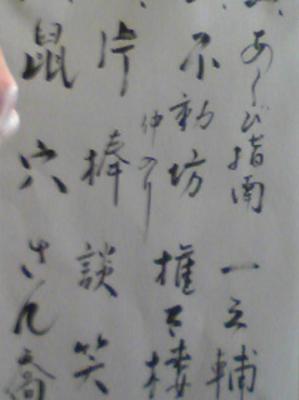 あくび指南 一之輔
不動坊 権太楼
仲入り
片棒 談笑
鼠穴 さん喬